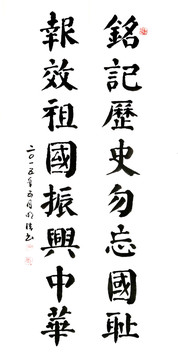 銘記歷史勿忘國耻
報效祖國振興中華
二〇一五年五月